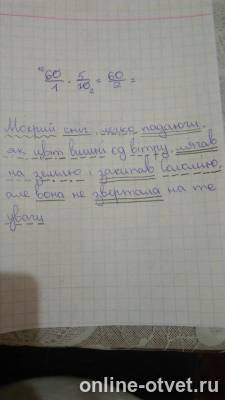 60/1 · 5/10 = 60/2 =
Мокрий сніг, мягко падаючи,
як цвіт вишні од вітру, лягав
на землю і закипав вологою,
але вона не звертала на те
уваги
online-otvet.ru